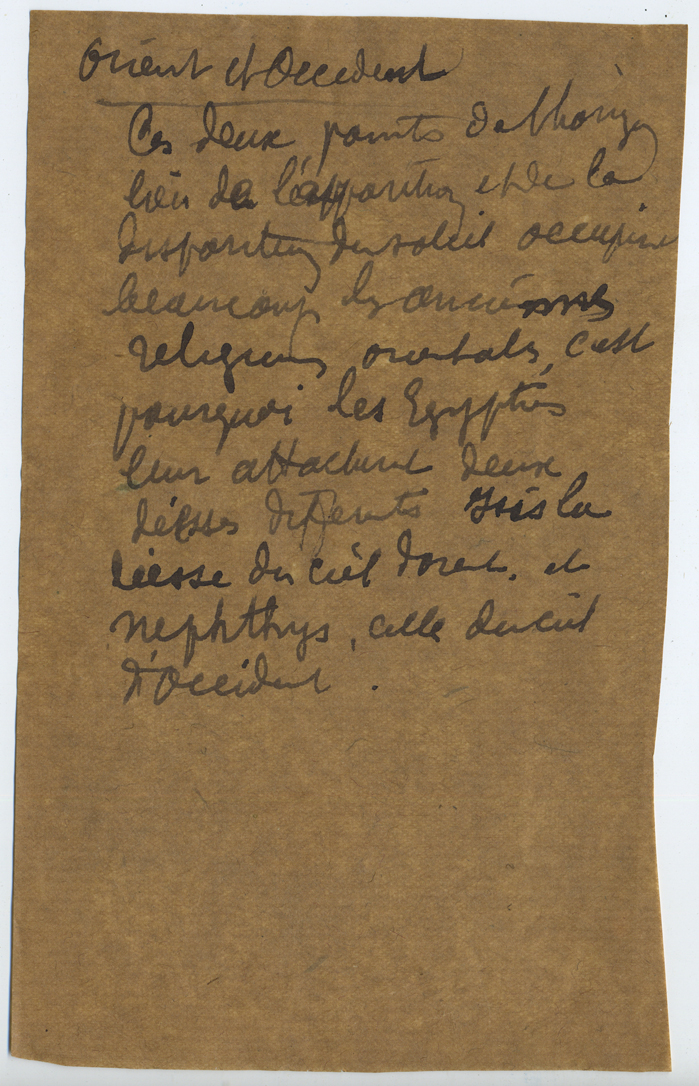 Orient et Occident
Ces deux points de l'horizon
lieu de l'apparition et de la
disparition du soleil occupent
beaucoup les anciennes
religions orientales, c'est
pourquoi les Egyptiens
leur attachent deux
déesses différentes Isis la
déesse du ciel d'orient, et
Nephthys, celle du ciel
d'Occident.